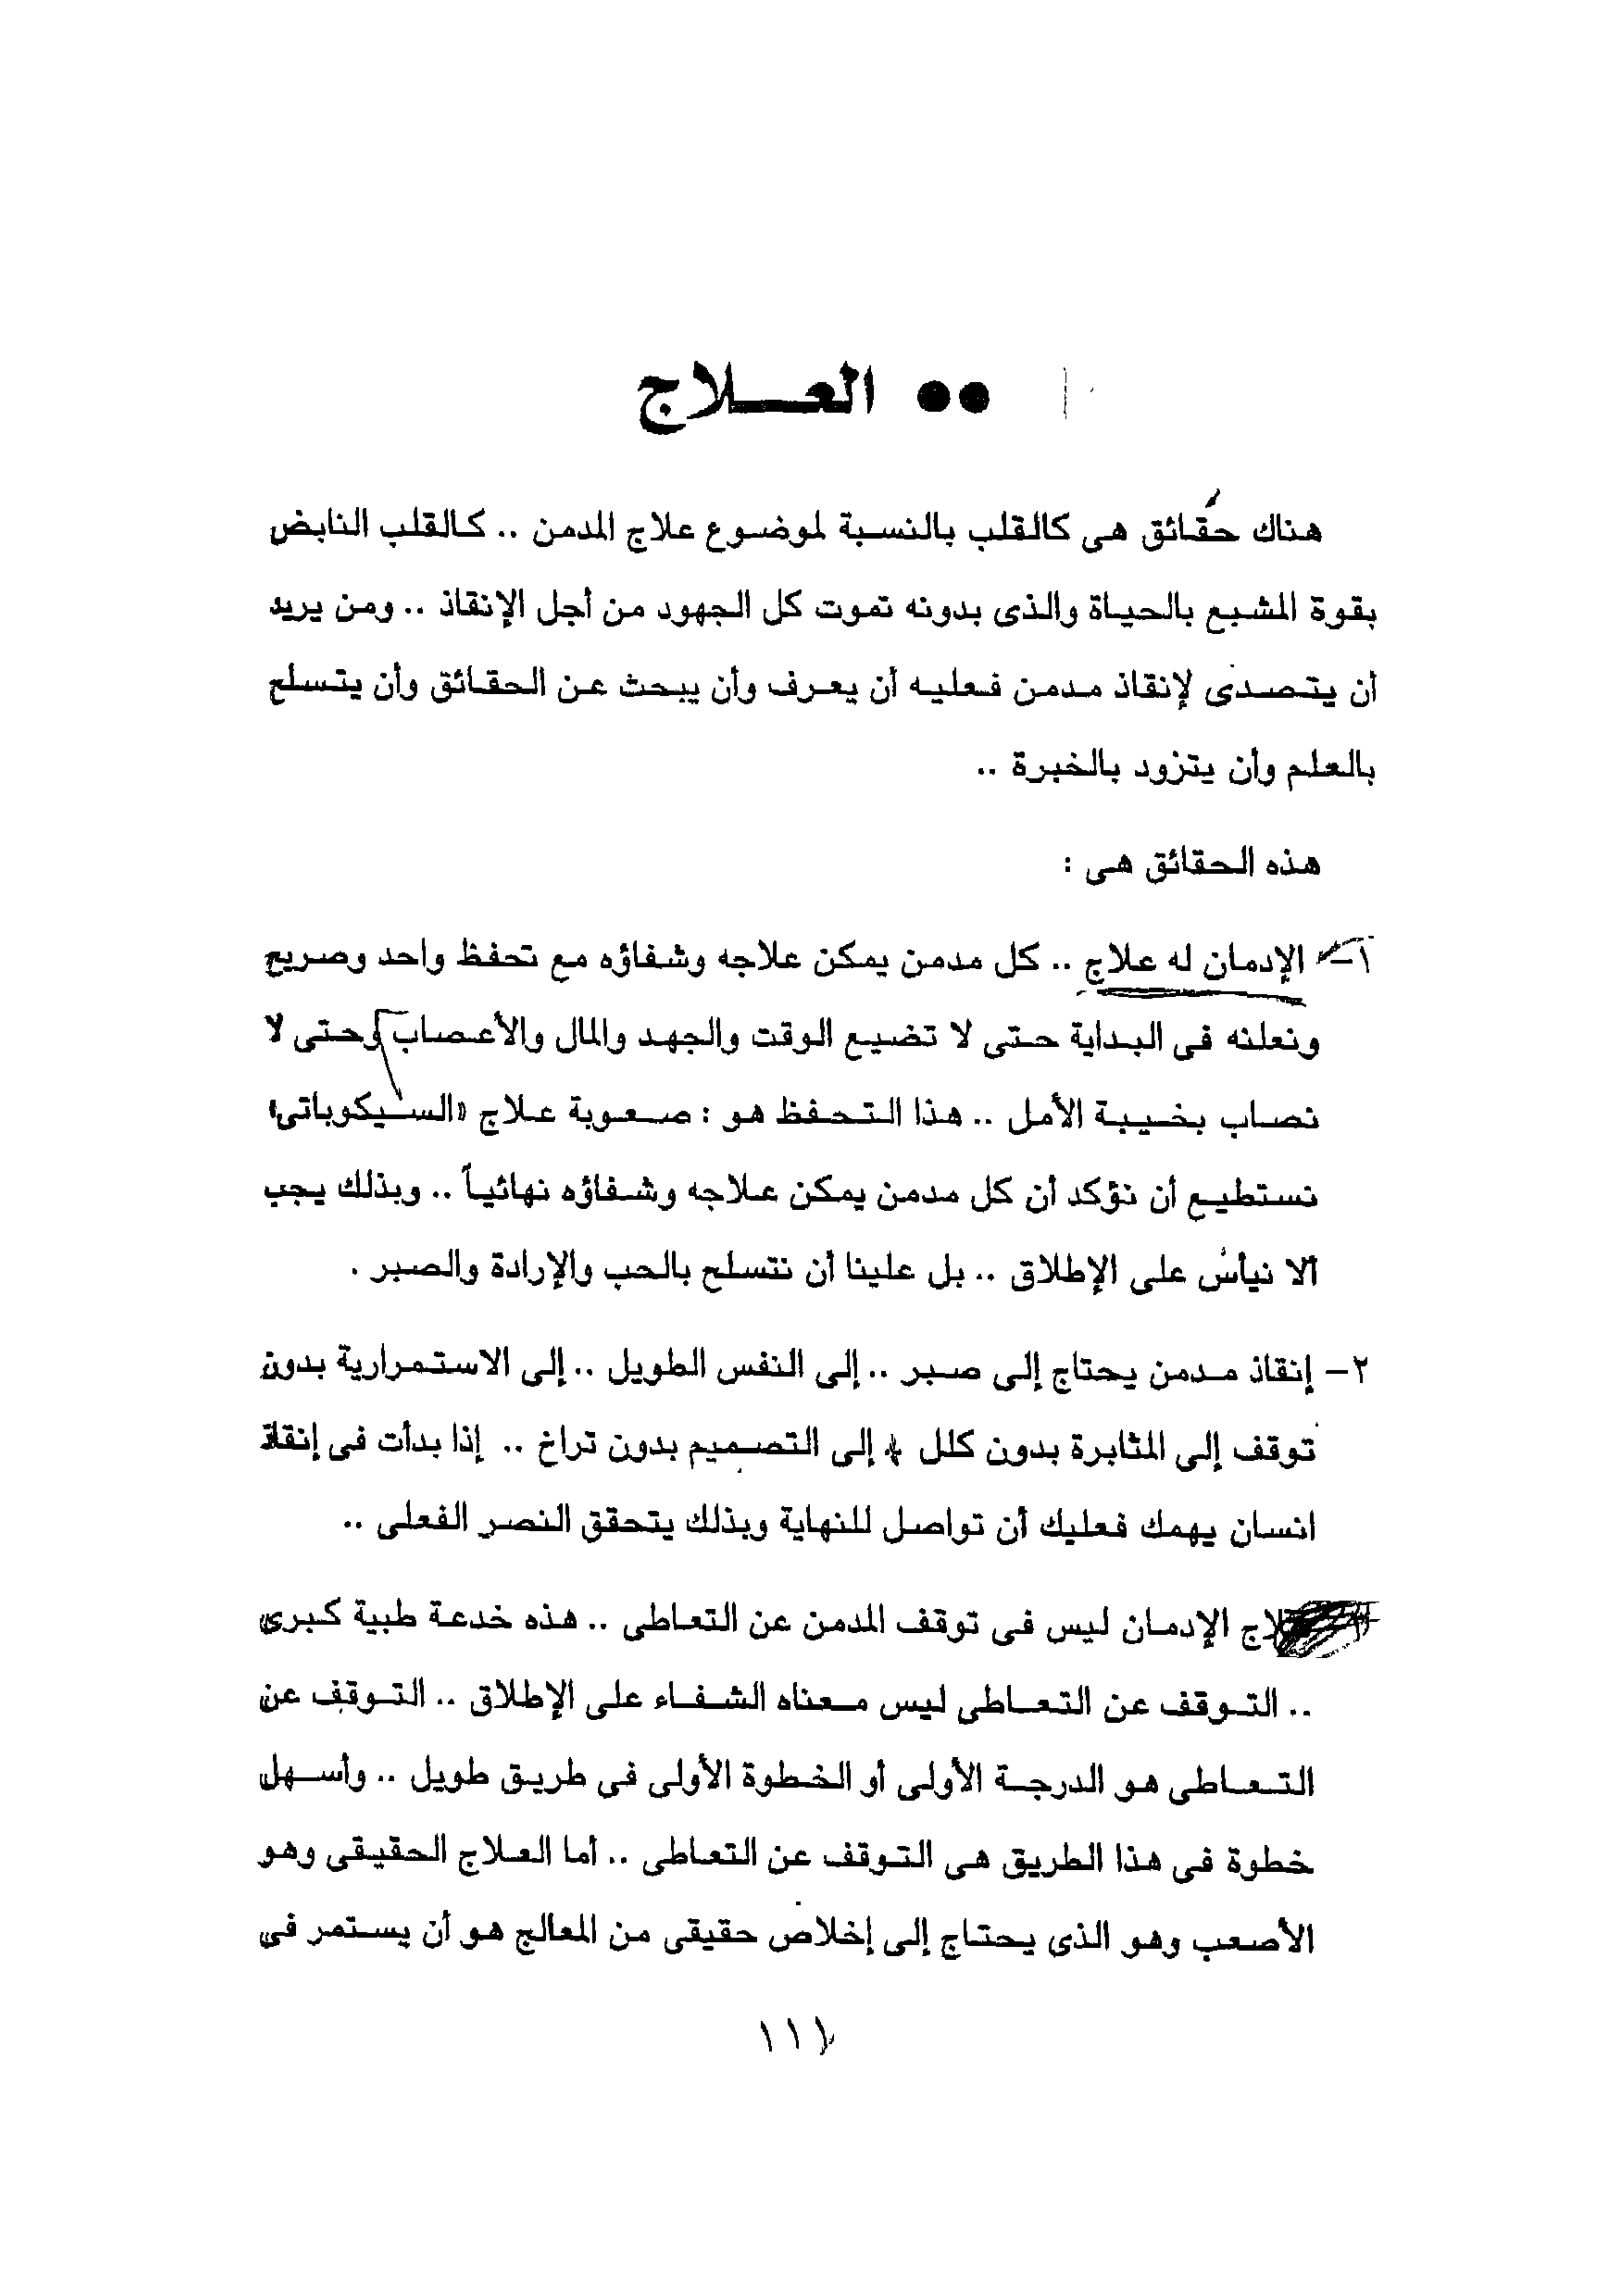 ●● العـــلاج
هناك حقائق هى كالقلب بالنسبة لموضوع علاج المدمن .. كالقلب النابض
بقوة المشبع بالحياة والذى بدونه تموت كل الجهود من أجل الإنقاذ .. ومن يريد
أن يتصدى لإنقاذ مدمن فعليه أن يعرف وأن يبحث عن الحقائق وأن يتسلح
بالعلم وأن يتزود بالخبرة ..
هذه الحقائق هى :
١- الإدمان له علاج .. كل مدمن يمكن علاجه وشفاؤه مع تحفظ واحد وصريح
ونعلنه فى البداية حتى لا تضيع الوقت والجهد والمال والأعصاب وحتى لا
نصاب بخيبة الأمل .. هذا التحفظ هو : صعوبة علاج «السيكوباتى»
نستطيع أن نؤكد أن كل مدمن يمكن علاجه وشفاؤه نهائياً .. وبذلك يجب
ألا نيأس على الإطلاق .. بل علينا أن نتسلح بالحب والإرادة والصبر .
٢- إنقاذ مدمن يحتاج إلى صبر .. إلى النفس الطويل .. إلى الاستمرارية بدون
توقف إلى المثابرة بدون كلل إلى التصميم بدون تراخ .. إذا بدأت فى إنقاذ
انسان يهمك فعليك أن تواصل للنهاية وبذلك يتحقق النصر الفعلى ..
الإدمان ليس فى توقف المدمن عن التعاطى .. هذه خدعة طبية كبرى
.. التوقف عن التعاطى ليس معناه الشفاء على الإطلاق .. التوقف عن
التعاطى هو الدرجة الأولى أو الخطوة الأولى فى طريق طويل .. وأسهل
خطوة فى هذا الطريق هى التوقف عن التعاطى .. أما العلاج الحقيقى وهو
الأصعب وهو الذى يحتاج إلى إخلاص حقيقى من المعالج هو أن يستمر فى
١١١